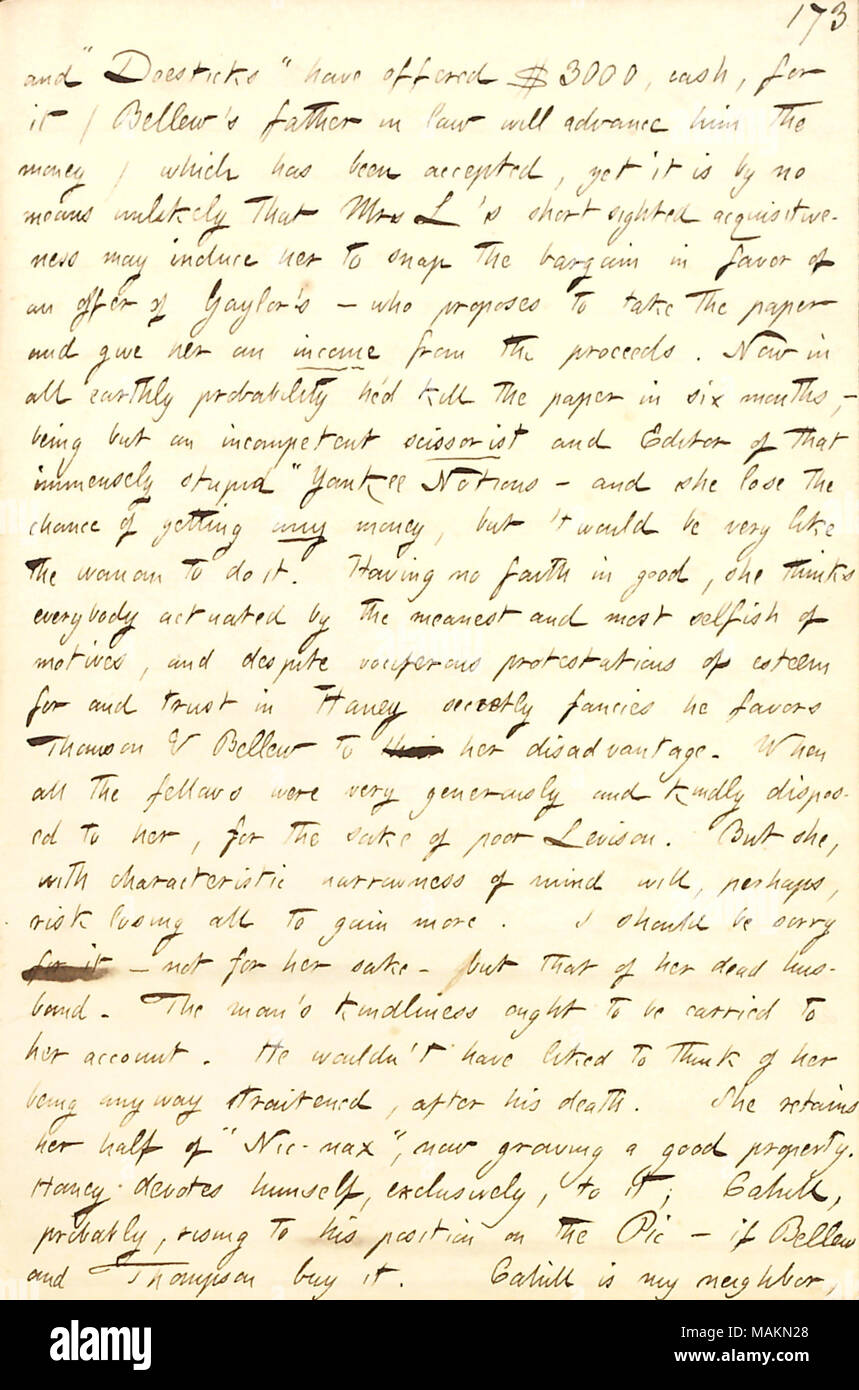 173
and "Doesticks" have offered $3000, cash, for
it / Bellew's father in law will advance him the
money / which has been accepted, yet it is by no
means unlikely that Mrs L's short sighted acquisitive-
ness may induce her to snap the bargain in favor of
an offer of Gaylor's — who proposes to take the paper
and give her an income from the proceeds. Now in
all earthly probability he'd kill the paper in six months, —
being but an incompetent scissorist and Editor of that
immensely stupid "Yankee Notions — and she lose the
chance of getting any money, but 't would be very like
the woman to do it. Having no faith in good, she thinks
everybody actuated by the meanest and most selfish of
motives, and despite vociferous protestations of esteem
for and trust in Haney secretly fancies he favors
Thomson & Bellew to their her disadvantage. When
all the fellows were very generously and kindly dispos-
ed to her, for the sake of poor Levison. But she,
with characteristic narrowness of mind will, perhaps,
risk losing all to gain more. I should be sorry
for it — not for her sake — but that of her dead hus-
band. The man's kindliness ought to be carried to
her account. He wouldn't have liked to think of her
being anyway straitened, after his death. She retains
her half of "Nic-nax", now growing a good property.
Haney devotes himself, exclusively, to it; Cahill,
probably, rising to his position on the Pic — if Bellew
and Thompson buy it. Cahill is my neighbor,
alamy
Image ID: MAKN28
www.alamy.com